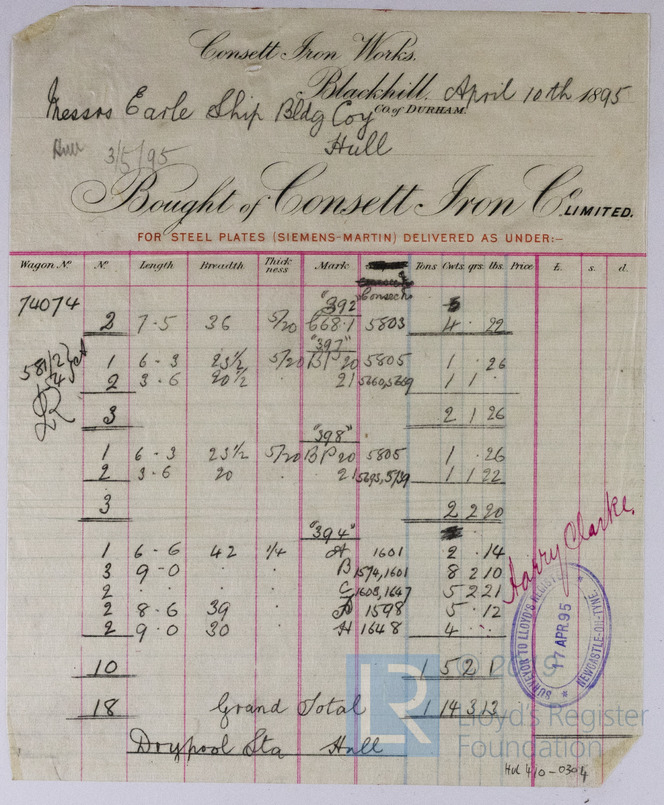 Consett Iron Works.
Blackhill. April 10th 1895
Co. of DURHAM.
Messrs Earle Ship Bldg Coy
Hull
3/5/95
Bought of Consett Iron Co. LIMITED.
FOR STEEL PLATES (SIEMENS-MARTIN) DELIVERED AS UNDER:—
Wagon No. No. Length Breadth Thickness Mark Tons Cwts. qrs. lbs. Price £. s. d.
74074 "392"
2 7-5 36 5/20 668.1 5803 4 . 22
"397"
1 6-3 23½ 5/20 BP 20 5805 1 . 26
2 3.6 20½ . 21 1 1 .
3 2 1 26
"398"
1 6-3 23½ 5/20 BP 20 5805 1 . 26
2 3.6 20 . 21 1 1 22
3 2 2 20
"394"
1 6-6 42 1/4 A 1601 2 . 14
3 9-0 . . B 1574,1601 8 2 10
2 . . . C 1605,1647 5 2 21
2 8-6 39 . 1598 5 . 12
2 9.0 30 . H 1648 4 . .
10 1 5 2 1
18 Grand Total 1 14 3 13
Drypool Sta Hull
Harry Clarke.
SURVEYOR TO LLOYD'S REGISTER
17 APR. 95
NEWCASTLE-ON-TYNE
LR
Lloyd's Register
Foundation